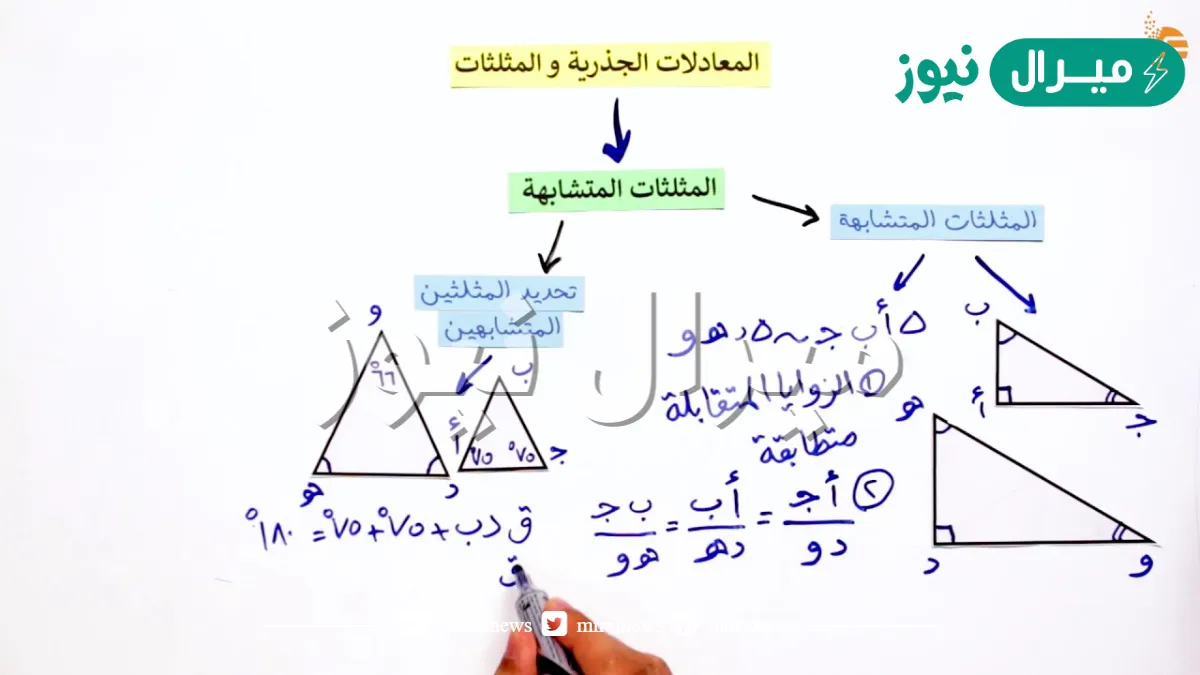 ميرال نيوز
المعادلات الجذرية و المثلثات
المثلثات المتشابهة
المثلثات المتشابهة
تحديد المثلثين
المتشابهين
ميرال نيوز
△ أ ب جـ ~ △ د هـ و
① الزوايا المتقابلة
متطابقة
② أجـ / دو = أب / دهـ = ب جـ / هـ و
ب
أ
جـ
هـ
د
و
و
٦٦°
هـ
د
ب
أ
جـ
٧٥° ٧٥°
ق دب + ٧٥° + ٧٥° = ١٨٠°
ق
news